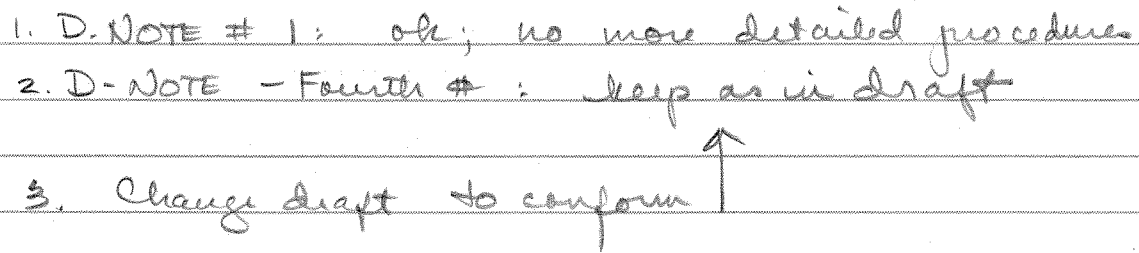 1. D. NOTE # 1: ok; no more detailed procedures
2. D-NOTE - Fourth #: keep as in draft
3. Change draft to conform ↑